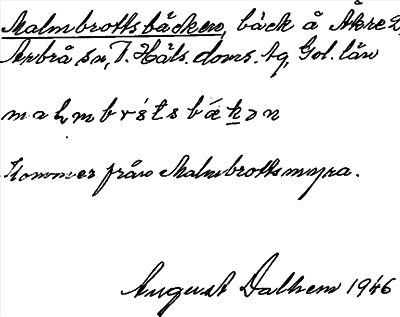 Malmbrottsbäcken, bäck å Åkre 2,
Arbrå sn, V. Häls. doms. tg, Gvl. län
Kommer från Malmbrottsmyra.
August Dalhem 1946